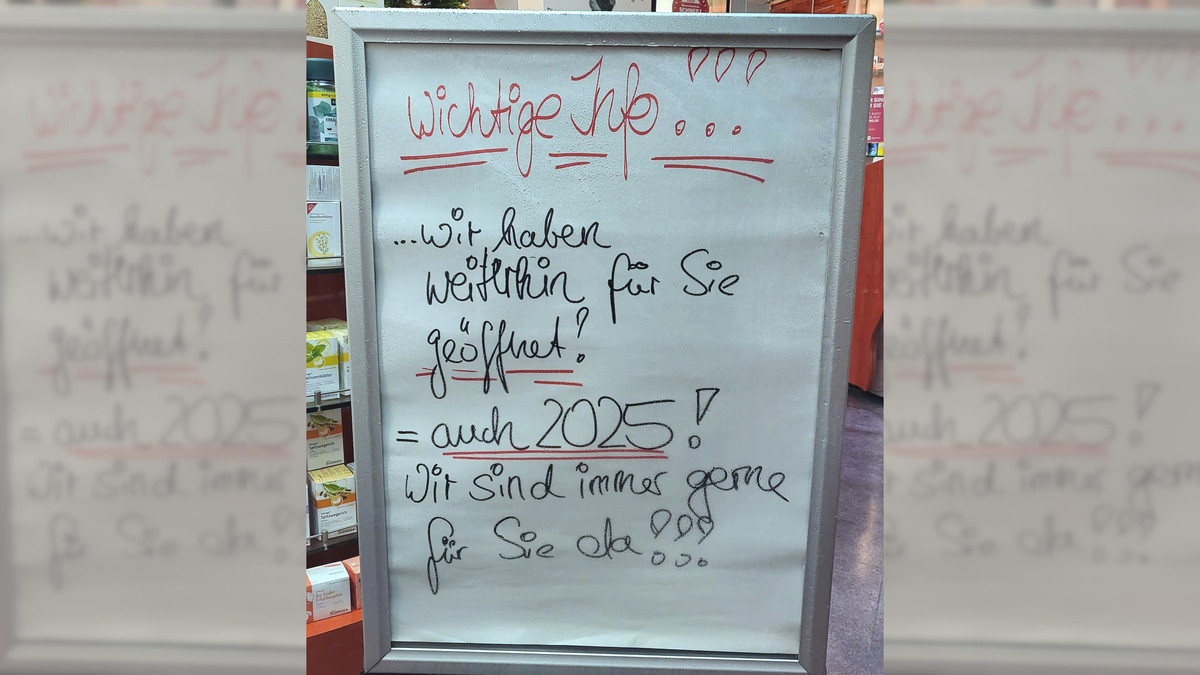 Wichtige Info!!!
...wir haben
weiterhin für Sie
geöffnet!
= auch 2025!
Wir sind immer gerne
für Sie da!!!